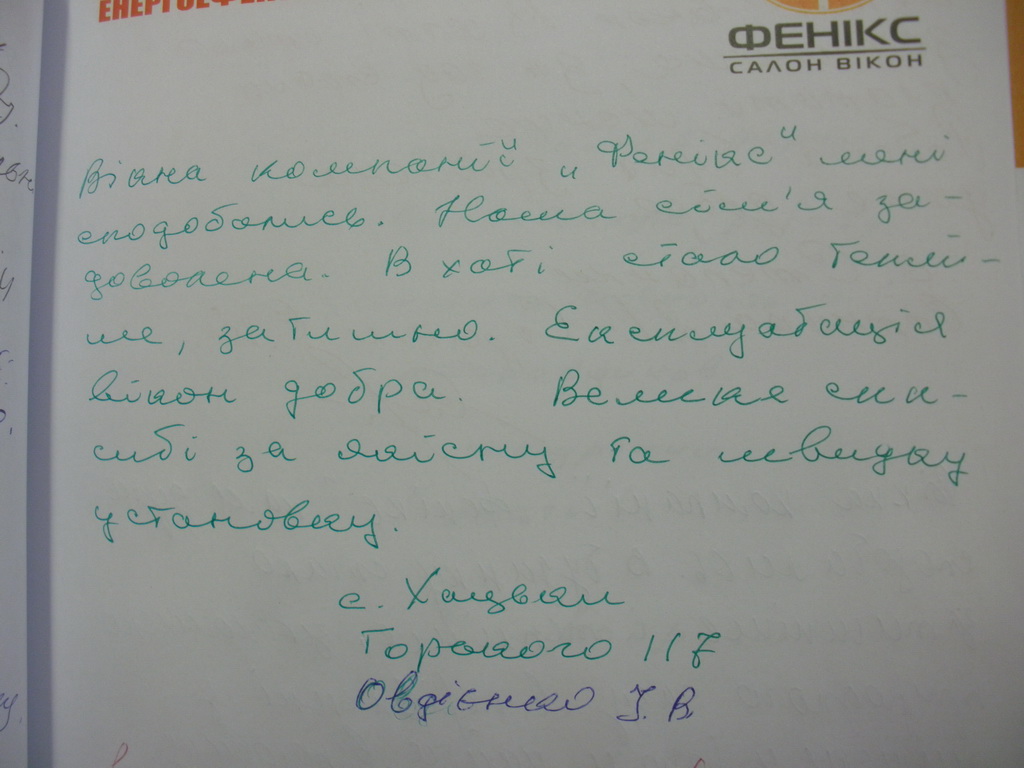 ФЕНІКС
САЛОН ВІКОН
Вікна компанії „Фенікс" мені
сподобались. Наша сім'я за-
доволена. В хаті стало теплі-
ше, затишно. Експлуатація
вікон добра. Велике спа-
сибі за якісну та швидку
установку.
с. Хацьки
Горького 117
Овдієнко І. В.